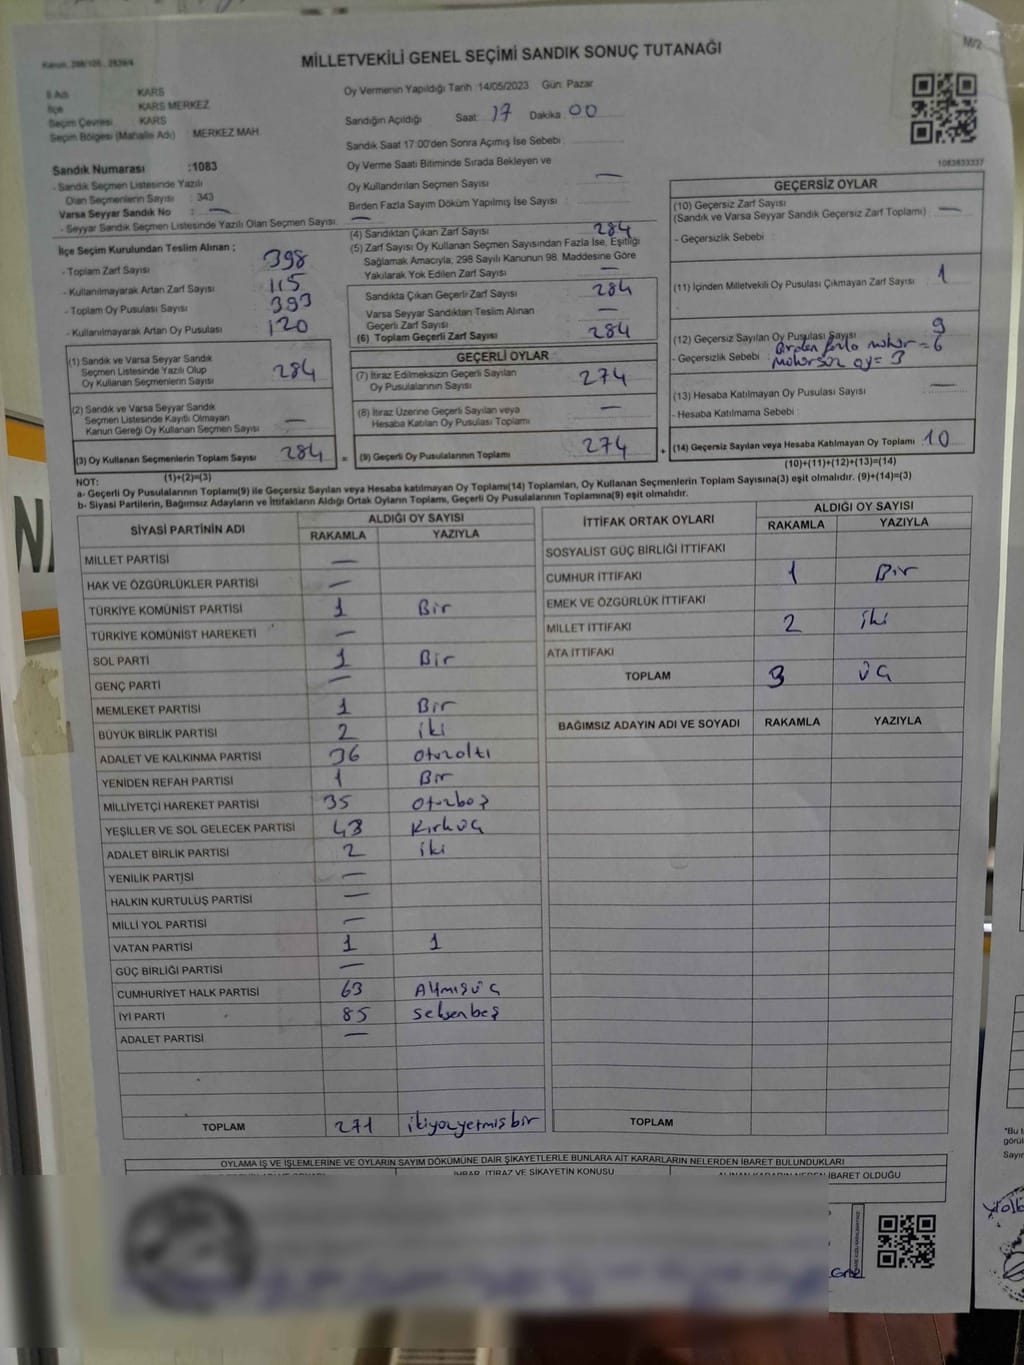 MİLLETVEKİLİ GENEL SEÇİMİ SANDIK SONUÇ TUTANAĞI
M/2
İl Adı : KARS
İlçe : KARS MERKEZ
Seçim Çevresi : KARS
Seçim Bölgesi (Mahalle Adı) : MERKEZ MAH.
Sandık Numarası :1083
- Sandık Seçmen Listesinde Yazılı
Olan Seçmenlerin Sayısı : 343
Varsa Seyyar Sandık No : —
- Seyyar Sandık Seçmen Listesinde Yazılı Olan Seçmen Sayısı : —
Oy Vermenin Yapıldığı Tarih :14/05/2023 Gün: Pazar
Sandığın Açıldığı Saat: 17 Dakika: 00
Sandık Saat 17:00'den Sonra Açımış İse Sebebi :
Oy Verme Saati Bitiminde Sırada Bekleyen ve
Oy Kullandırılan Seçmen Sayısı : —
Birden Fazla Sayım Döküm Yapılmış İse Sayısı :
1083833337
İlçe Seçim Kurulundan Teslim Alınan ;
- Toplam Zarf Sayısı : 398
- Kullanılmayarak Artan Zarf Sayısı : 115
- Toplam Oy Pusulası Sayısı : 393
- Kullanılmayarak Artan Oy Pusulası : 120
(1) Sandık ve Varsa Seyyar Sandık
Seçmen Listesinde Yazılı Olup
Oy Kullanan Seçmenlerin Sayısı 284
(2) Sandık ve Varsa Seyyar Sandık
Seçmen Listesinde Kayıtlı Olmayan
Kanun Gereği Oy Kullanan Seçmen Sayısı —
(3) Oy Kullanan Seçmenlerin Toplam Sayısı 284
(1)+(2)=(3)
(4) Sandıktan Çıkan Zarf Sayısı : 284
(5) Zarf Sayısı Oy Kullanan Seçmen Sayısından Fazla İse, Eşitliği
Sağlamak Amacıyla, 298 Sayılı Kanunun 98. Maddesine Göre
Yakılarak Yok Edilen Zarf Sayısı : —
Sandıkta Çıkan Geçerli Zarf Sayısı : 284
Varsa Seyyar Sandıktan Teslim Alınan
Geçerli Zarf Sayısı : —
(6) Toplam Geçerli Zarf Sayısı : 284
GEÇERLİ OYLAR
(7) İtiraz Edilmeksizin Geçerli Sayılan
Oy Pusulalarının Sayısı : 274
(8) İtiraz Üzerine Geçerli Sayılan veya
Hesaba Katılan Oy Pusulası Toplamı : —
= (9) Geçerli Oy Pusulalarının Toplamı : 274
GEÇERSİZ OYLAR
(10) Geçersiz Zarf Sayısı
(Sandık ve Varsa Seyyar Sandık Geçersiz Zarf Toplamı) : —
- Geçersizlik Sebebi :
(11) İçinden Milletvekili Oy Pusulası Çıkmayan Zarf Sayısı : 1
(12) Geçersiz Sayılan Oy Pusulası Sayısı : 9
- Geçersizlik Sebebi : Birden fazla mühür = 6
mühürsüz oy = 3
(13) Hesaba Katılmayan Oy Pusulası Sayısı : —
- Hesaba Katılmama Sebebi :
+ (14) Geçersiz Sayılan veya Hesaba Katılmayan Oy Toplamı : 10
(10)+(11)+(12)+(13)=(14)
NOT:
a- Geçerli Oy Pusulalarının Toplamı(9) ile Geçersiz Sayılan veya Hesaba katılmayan Oy Toplamı(14) Toplamları, Oy Kullanan Seçmenlerin Toplam Sayısına(3) eşit olmalıdır. (9)+(14)=(3)
b- Siyasi Partilerin, Bağımsız Adayların ve İttifakların Aldığı Ortak Oyların Toplamı, Geçerli Oy Pusulalarının Toplamına(9) eşit olmalıdır.
SİYASİ PARTİNİN ADI ALDIĞI OY SAYISI
RAKAMLA YAZIYLA
MİLLET PARTİSİ —
HAK VE ÖZGÜRLÜKLER PARTİSİ —
TÜRKİYE KOMÜNİST PARTİSİ 1 Bir
TÜRKİYE KOMÜNİST HAREKETİ —
SOL PARTİ 1 Bir
GENÇ PARTİ —
MEMLEKET PARTİSİ 1 Bir
BÜYÜK BİRLİK PARTİSİ 2 iki
ADALET VE KALKINMA PARTİSİ 36 otuzaltı
YENİDEN REFAH PARTİSİ 1 Bir
MİLLİYETÇİ HAREKET PARTİSİ 35 otuzbeş
YEŞİLLER VE SOL GELECEK PARTİSİ 43 Kırküç
ADALET BİRLİK PARTİSİ 2 iki
YENİLİK PARTİSİ —
HALKIN KURTULUŞ PARTİSİ —
MİLLİ YOL PARTİSİ —
VATAN PARTİSİ 1 1
GÜÇ BİRLİĞİ PARTİSİ —
CUMHURİYET HALK PARTİSİ 63 Altmışüç
İYİ PARTİ 85 seksenbeş
ADALET PARTİSİ —
TOPLAM 271 ikiyüzyetmişbir
İTTİFAK ORTAK OYLARI ALDIĞI OY SAYISI
RAKAMLA YAZIYLA
SOSYALİST GÜÇ BİRLİĞİ İTTİFAKI
CUMHUR İTTİFAKI 1 Bir
EMEK VE ÖZGÜRLÜK İTTİFAKI
MİLLET İTTİFAKI 2 iki
ATA İTTİFAKI
TOPLAM 3 üç
BAĞIMSIZ ADAYIN ADI VE SOYADI RAKAMLA YAZIYLA
TOPLAM
OYLAMA İŞ VE İŞLEMLERİNE VE OYLARIN SAYIM DÖKÜMÜNE DAİR ŞİKAYETLERLE BUNLARA AİT KARARLARIN NELERDEN İBARET BULUNDUKLARI
İHBAR, İTİRAZ VE ŞİKAYETİN KONUSU
ALINAN KARARIN NEDEN İBARET OLDUĞU